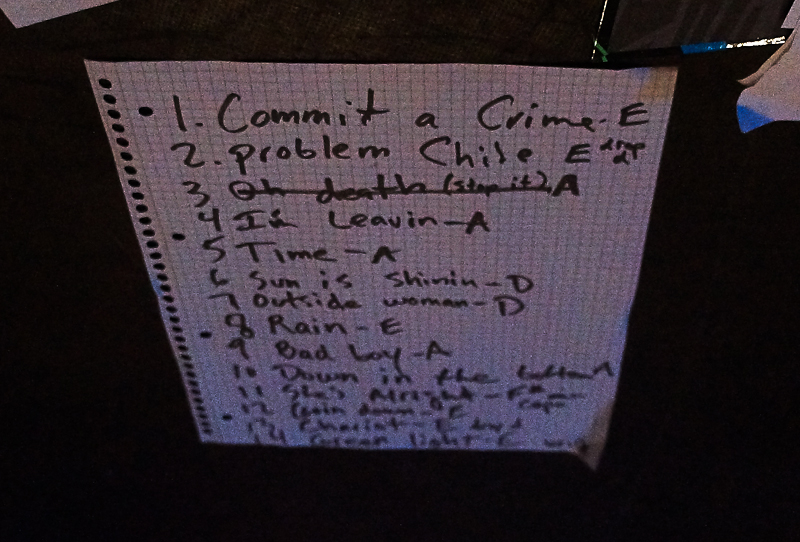 1. Commit a Crime-E
2. problem Chile E drop d
3 Oh death (stop it) A
4 I's Leavin-A
5 Time-A
6 Sun is shinin-D
7 Outside woman-D
8 Rain-E
9 Bad boy-A
10 Down in the bottom A
11 She's Alright-E
12 Goin down-E
13 Chariot-E
14 Green light-E